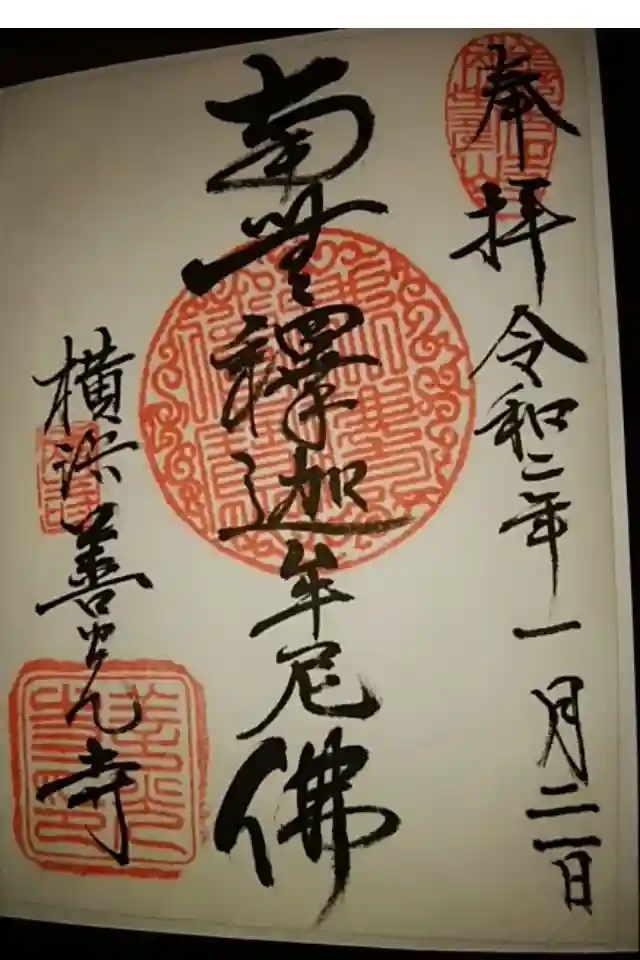 奉拝 令和二年一月二一日
南無釋迦牟尼佛
横浜善光寺